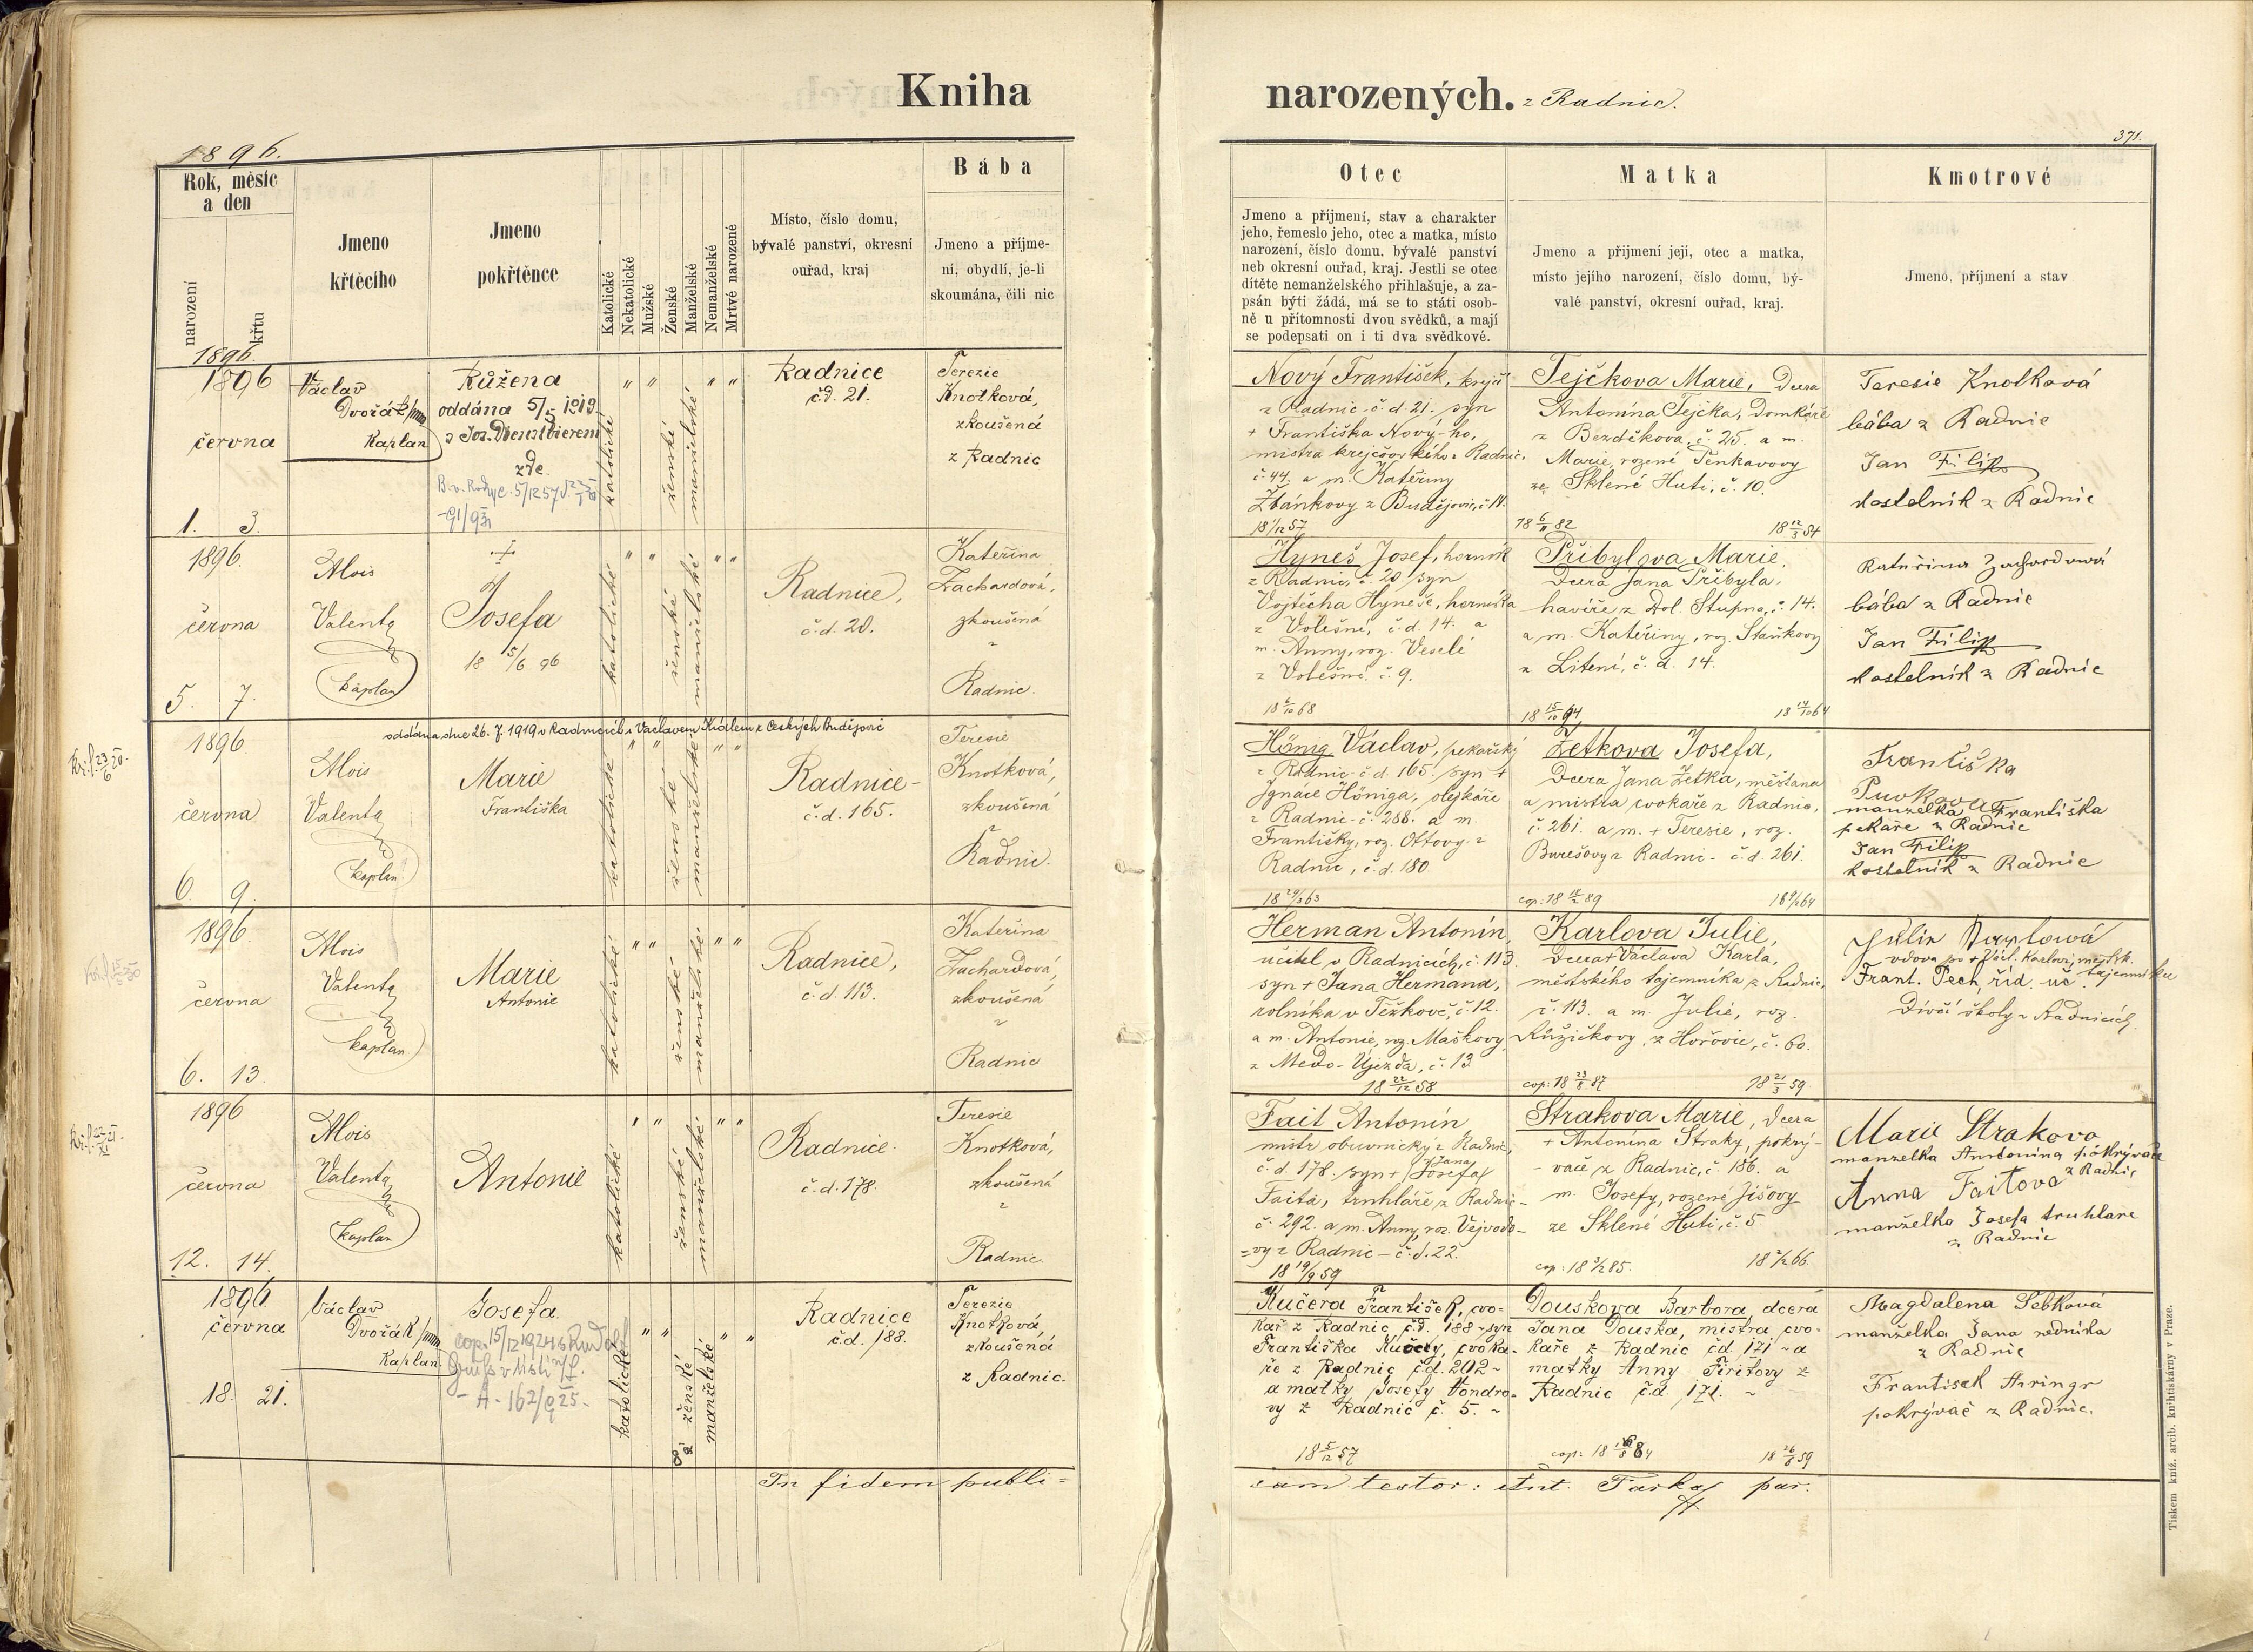 Kniha
narozených. z Radnic.
371.
1896.
Rok, měsíc
a den
narození
křtu
Jmeno
křtěcího
Jmeno
pokřtěnce
Katolické
Nekatolické
Mužské
Ženské
Manželské
Nemanželské
Mrtvé narozené
Místo, číslo domu,
bývalé panství, okresní
ouřad, kraj
Bába
Jmeno a příjme-
ní, obydlí, je-li
skoumána, čili nic
Otec
Jmeno a příjmení, stav a charakter
jeho, řemeslo jeho, otec a matka, místo
narození, číslo domu, bývalé panství
neb okresní ouřad, kraj. Jestli se otec
dítěte nemanželského přihlašuje, a za-
psán býti žádá, má se to státi osob-
ně u přítomnosti dvou svědků, a mají
se podepsati on i ti dva svědkové.
Matka
Jmeno a přijmení její, otec a matka,
místo jejího narození, číslo domu, bý-
valé panství, okresní ouřad, kraj.
Kmotrové
Jmeno, příjmení a stav
1896.
1896
června
1. 3.
Václav
Dvořák
Kaplan
Růžena
oddána 5/5 1919.
s Jos. Dienstbierem
zde.
katolické
ženské
manželské
Radnice
č.d. 21.
Terezie
Knotková,
zkoušená
z Radnic
Nový František, krejčí
z Radnic č.d. 21. syn
+ Františka Nový-ho,
mistra krejčovského z Radnic.
č. 44. a m. Kateřiny
Žbánkovy z Budějovic, č. 14.
18 1/12 57
Tejčkova Marie, dcera
Antonína Tejčka, domkáře
z Bezděkova, č. 25. a m.
Marie, rozené Penkavovy
ze Sklené Huti, č. 10.
18 6/11 82
18 12/3 54
Teresie Knotková
bába z Radnic
Jan Filip
kostelník z Radnic
1896.
června
5. 7.
Alois
Valenta
kaplan
Josefa
18 5/6 96
katolické
ženské
manželské
Radnice,
č.d. 20.
Kateřina
Zachardová,
zkoušená
z
Radnic.
Hyneš Josef, horník
z Radnic, č. 20 syn
Vojtěcha Hyneše, horníka
z Volešné, č.d. 14. a
m. Anny, roz. Veselé
z Volešné č. 9.
Přibylova Marie,
dcera Jana Přibyla,
havíře z Dol. Stupna, č. 14.
a m. Kateřiny, roz. Staňkovy
z Litení, č. d. 14.
18 15/10 94
18 14/10 64
Kateřina Zachardová
bába z Radnic
Jan Filip
kostelník z Radnic
oddána dne 26. 7. 1919 v Radnicích s Václavem Králem z Českých Budějovic
1896.
června
6. 9.
Alois
Valenta
kaplan
Marie
Františka
katolické
ženské
manželské
Radnice-
č.d. 165.
Teresie
Knotková,
zkoušená
z
Radnic.
Hönig Václav, pekařský
z Radnic č.d. 165. syn +
Ignáce Höniga, olejkáře
z Radnic č. 288. a m.
Františky, roz. Ottovy z
Radnic, č.d. 180.
Zetkova Josefa,
dcera Jana Zetka, měšťana
a mistra cvokaře z Radnic,
č. 261. a m. + Teresie, roz.
Burešovy z Radnic - č.d. 261.
cop: 18 18/2 89
Františka
manželka Františka
pekaře z Radnic
Jan Filip
kostelník z Radnic
1896.
června
6. 13.
Alois
Valenta
kaplan
Marie
Antonie
katolické
ženské
manželské
Radnice,
č.d. 113.
Kateřina
Zachardová,
zkoušená
z
Radnic
Herman Antonín,
učitel v Radnicích, č. 113.
syn + Jana Hermana,
rolníka v Těžkově, č. 12.
a m. Antonie, roz. Maškovy
z Medo-Újezda, č. 13
18 22/12 58
Karlova Julie,
dcera + Václava Karla,
městského tajemníka z Radnic,
č. 113. a m. Julie, roz.
Růžičkovy, z Hořovic, č. 60.
cop: 18 23/8 87
18 21/3 59
Julie Karlová
vdova po + Václ. Karlovi, městsk.
tajemníku
Frant. Pech, říd. uč.
dívčí školy v Radnicích
1896
června
12. 14.
Alois
Valenta
kaplan
Antonie
katolické
ženské
manželské
Radnice.
č.d. 178.
Teresie
Knotková,
zkoušená
z
Radnic.
Fait Antonín
mistr obuvnický z Radnic,
č.d. 178. syn + Jana (Josefa)
Faita, truhláře z Radnic-
č. 292. a m. Anny, roz. Vejvodo-
=vy z Radnic - č.d. 22.
18 19/9 59
Strakova Marie, dcera
+ Antonína Straky, pokrý-
-vače z Radnic, č. 186. a
m. Josefy, rozené Jišovy
ze Sklené Huti, č. 5.
cop: 18 3/2 85.
18 2/12 66.
Marie Strakova
manželka Antonína pokrývače
z Radnic
Anna Faitova
manželka Josefa truhlare
z Radnic
1896
června
18. 21.
Václav
Dvořák
Kaplan.
Josefa.
cop. 15/12 1924 s Rudolf
katolické
ženské
manželské
Radnice
č.d. 188.
Terezie
Knotková,
zkoušená
z Radnic.
Kučera František, cvo-
kař z Radnic č.d. 188 - syn
Františka Kučery, cvoka-
ře z Radnic č.d. 202 -
a matky Josefy Vondro-
vy z Radnic č. 5. -
18 5/12 57
Douskova Barbora, dcera
Jana Douska, mistra cvo-
kaře z Radnic čd 171 - a
matky Anny Tiřitovy z
Radnic čd. 171. -
18 26/8 59
Magdalena Sebková
manželka Jana redníka
z Radnic
Frantisek Auringr
pokrývač z Radnic.
In fidem publi=
cam testor: Ant. Farka par.
Tiskem kníž. arcib. knihtiskárny v Praze.